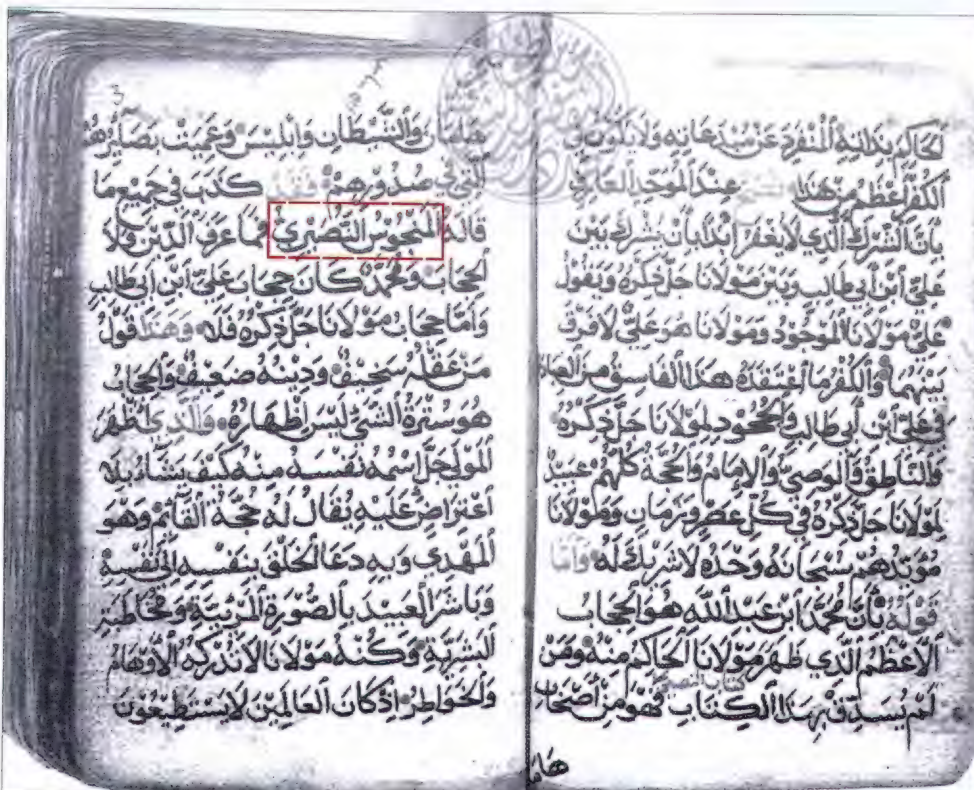 الحاكم بذاته المنفرد عن مبدعاته ولا يكون في
الكفر أعظم من هذا عند الموحد العارف
بأن الشرك الذي لا يغفر أبدا بأن يشرك بين
علي ابن أبي طالب وبين مولانا جل ذكره ويقول
علي مولانا الموجود ومولانا هو علي لا فرق
بينهما والكفر ما اعتقده هذا الفاسق من العبادة
في علي ابن أبي طالب والجحود لمولانا جل ذكره
والناطق والوصي والإمام والحجة كلهم عبيد
لمولانا جل ذكره في كل عصر وزمان ومولانا
مؤيدهم سبحانه وحده لا شريك له وأما
قوله بأن محمد ابن عبد الله هو الحجاب
الأعظم الذي ظهر مولانا الحاكم منه ومن
لم يسدق بهذا الكتاب فهو من أصحاب
هاما
3
هامان والشيطان وإبليس وعميت بصايرهم
التي في صدورهم فقد كذب في جميع ما
قاله المنجوس النصيري فما عرف الدين ولا
الحجاب ومحمد كان حجاب علي ابن أبي طالب
وأما حجاب مولانا جل ذكره فلا وهذا قول
من عقله سخيف ودينه ضعيف والحجاب
هو سترة الشي ليس إظهاره والذي أظهر
المولى جل اسمه نفسه منه كيف يشاء بلا
اعتراض عليه يقال له حجة القائم وهو
المهدي وبه دعا الخلق بنفسه إلى نفسه
وباشر العبيد بالصورة المرئية ومخاطبة
البشرية وكنه مولانا لا تدركه الأوهام
والخواطر إذ كان العالمين لا يستطيعون